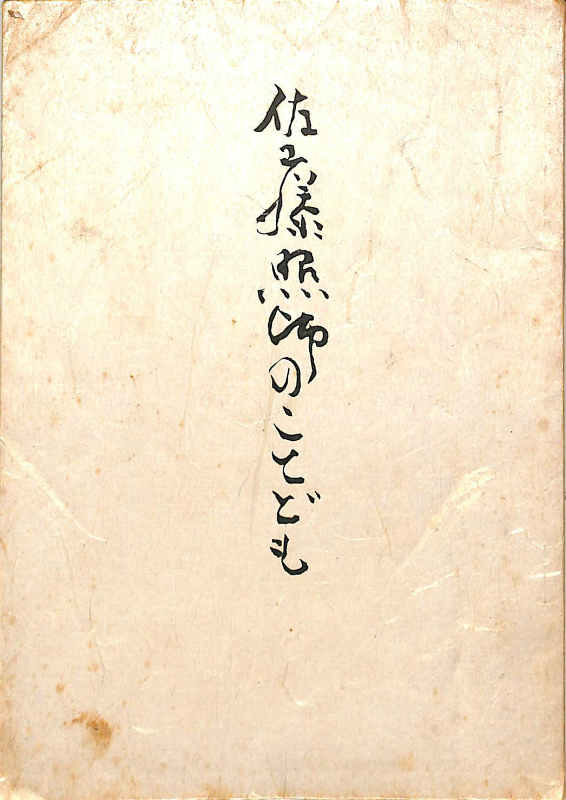 佐藤照師のことども